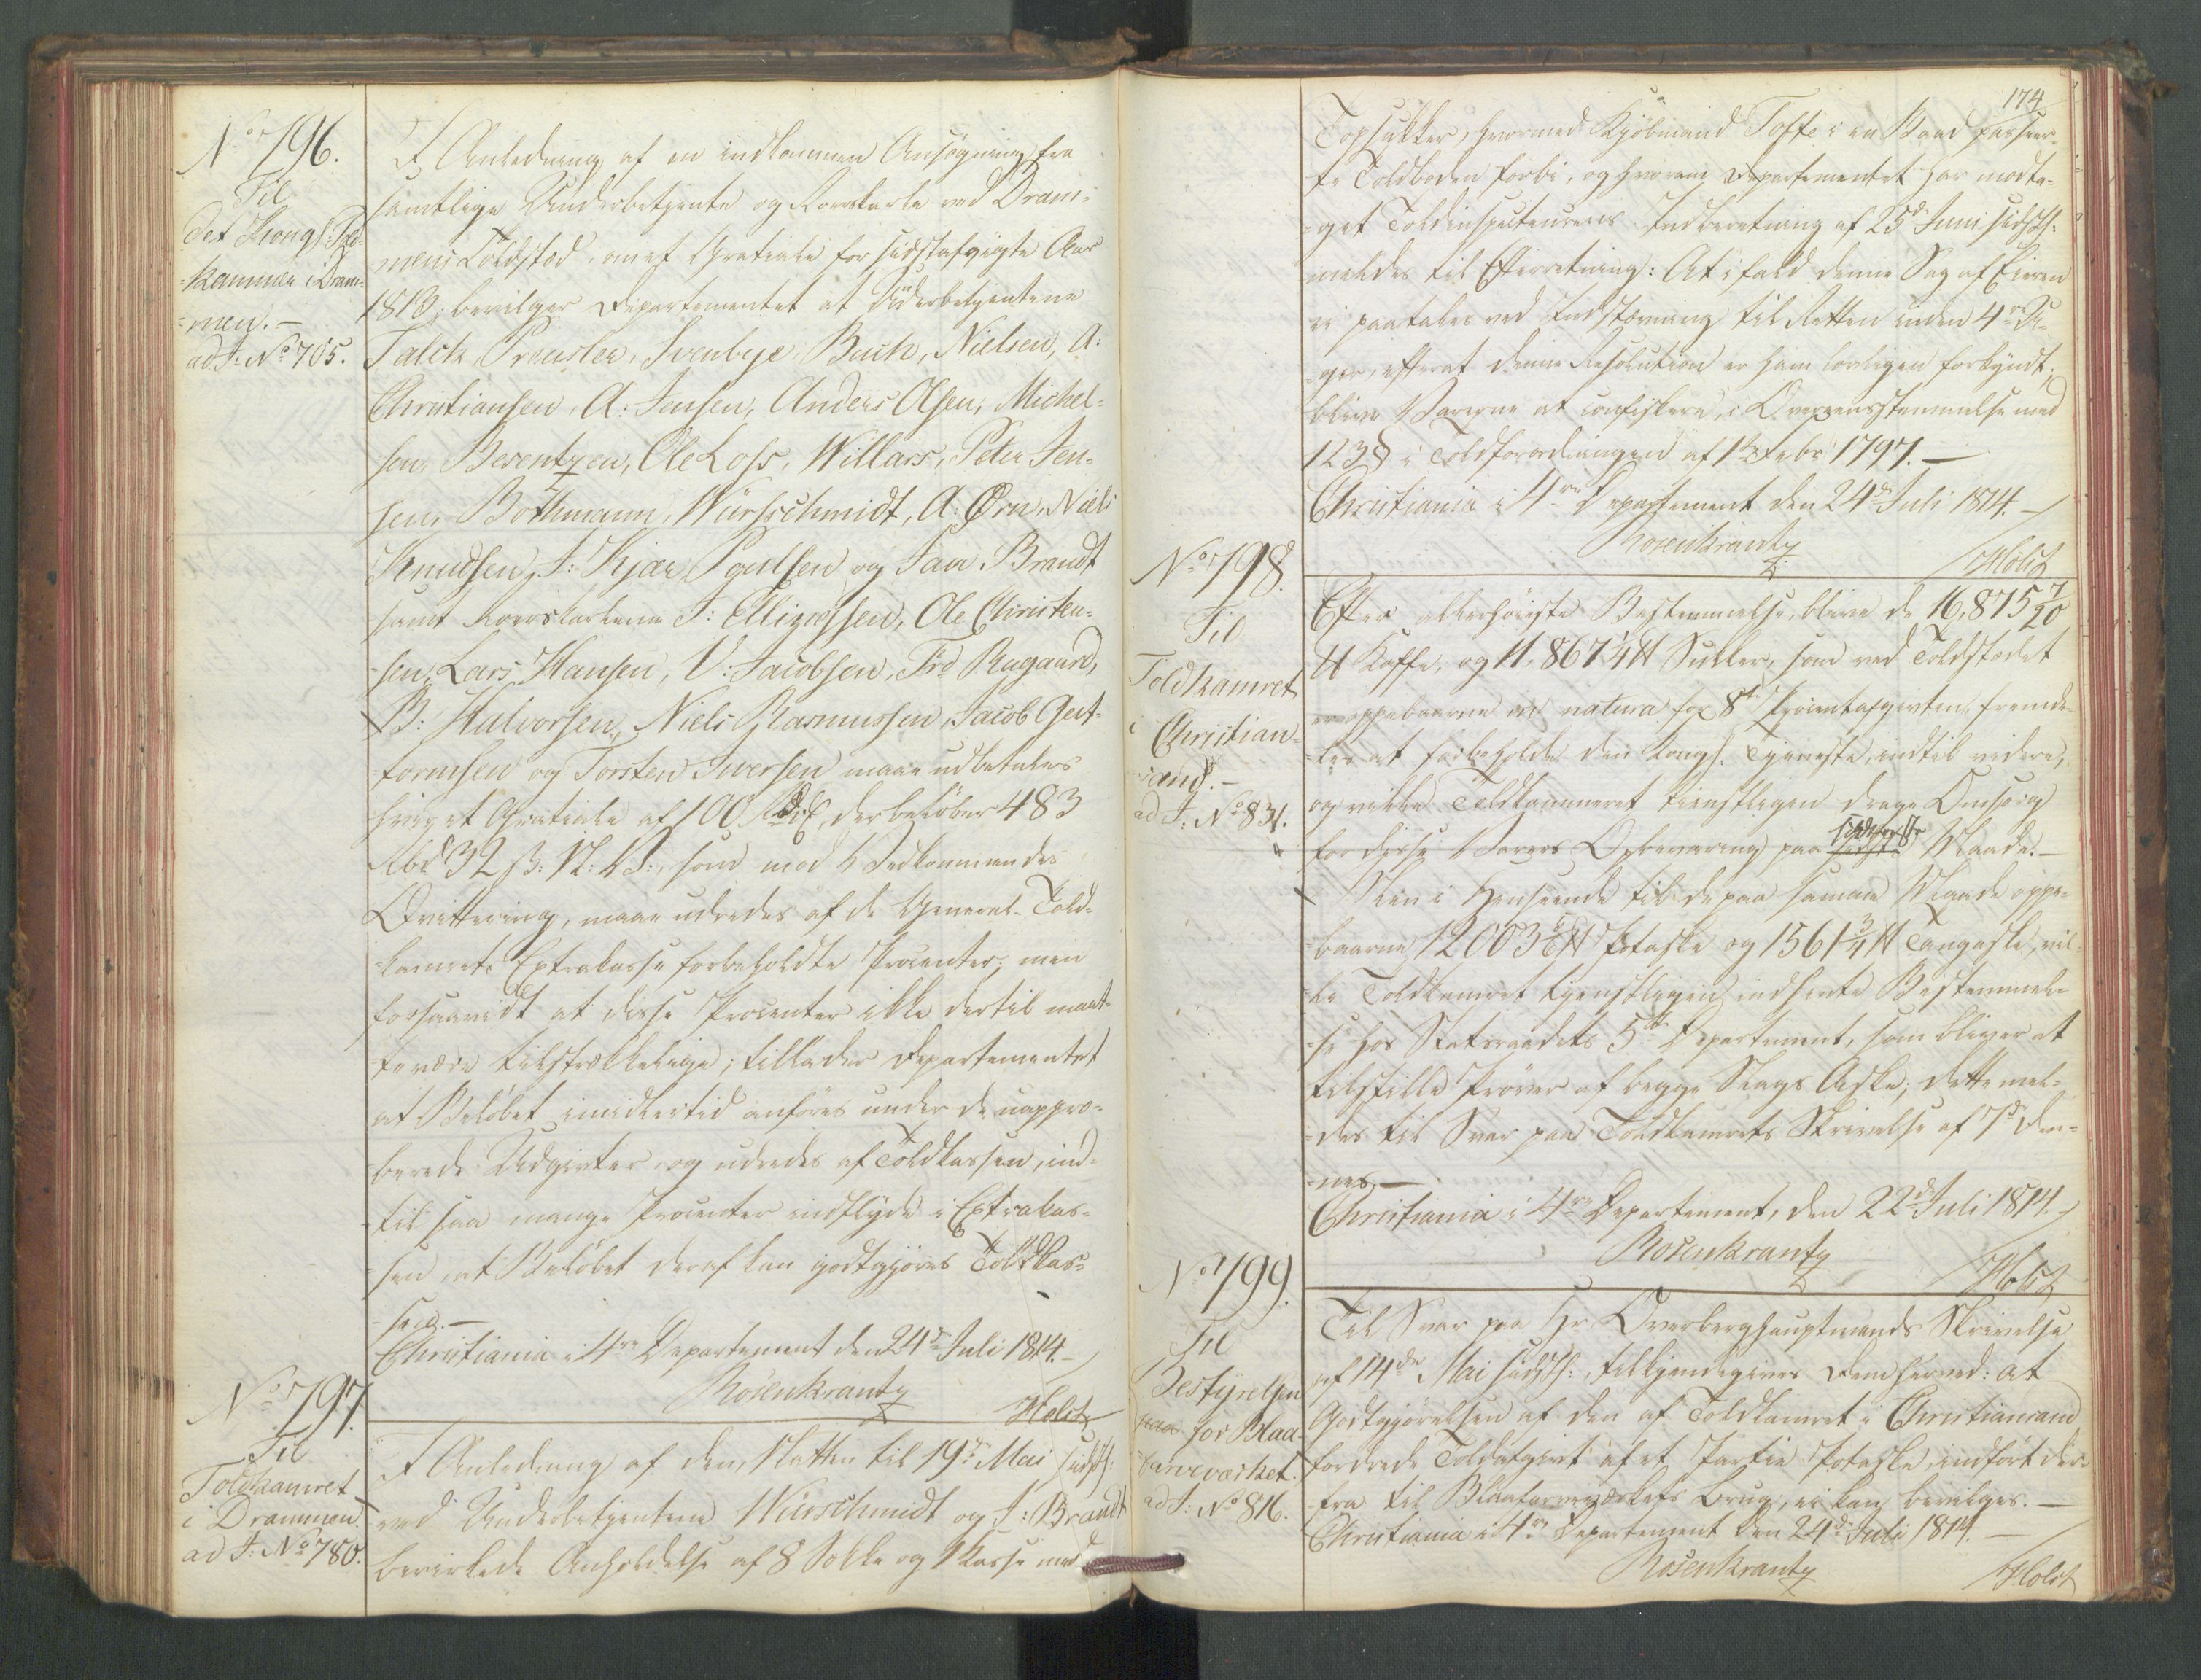 No 796.
Til
Det Kongl: Told-
kammer i Dram-
men.-
ad J: No 705.
I Anledning af en indkommen Ansøgning fra
samtlige Underbetjente og Roerskarle ved Dram-
mens Toldsted, om et Gratiale for sidstafvigte Aar
1813, bevilger Departementet at Underbetjentene
Falck, Preusler, Svenbye, Buch, Nielsen, A:
Christiansen, A: Jensen, Anders Olsen, Michel-
sen, Berentzen, Ole Loss, Willars, Peter Jen-
sen, Bothmann, Würschmidt, A: Ørn, Niels
Knudsen, J: Kjær, Poulsen og Faa Brandt
samt Roerskarlene J: Ellingsen, Ole Christen-
sen, Lars Hansen, V: Jacobsen, Frd Ragaard,
B: Halvorsen, Niels Rasmussen, Jacob Gut-
tormsen og Torsten Iversen maae udbetales
hver et Gratiale af 100 Rdr, der beløber 483
Rbd 32 s: N: V:, som mod Vedkommendes
Qvittering, maae udredes af de General-Told-
kamrets Extrakasse forbeholdte Procenter; men
forsaavidt at disse Procenter ikke dertil maat-
te være tilstrækkelige; tillader Departementet
at Beløbet imidlertid anføres under de uappro-
berede Udgivter og udredes af Toldkassen, ind-
til saa mange Procenter indflyde i Extrakas-
sen, at Beløbet deraf kan godtgjøres Toldkas-
sen.-
Christiania i 4re Departement den 24de Juli 1814.-
Rosenkrantz
Holst
No 797.
Til
Toldkamret
i Drammen.
ad J: No 780.
I Anledning af den, Natten til 19de Mai sidstl:
ved Underbetjentene Würschmidt og J: Brandt
bevirkede Anholdelse af 8 Sække og 1 Kasse med
174
Topsukker, hvormed Kjøbmand Toffte i en Baad passeer-
te Toldboden forbi, og hvorom Departementet har modta-
get Toldinspecteurens Indberetning af 25de Juni sidstl:
meldes til Efterretning: At ifald denne Sag af Eieren
ei paatales ved Indstævning til Retten inden 4re U-
ger, efterat denne Resolution er ham lovligen forkyndt,
blive Varerne at confiskere, i Overeensstemmelse med
123 § i Toldforordningen af 1ste Febr 1797.-
Christiania i 4re Departement den 24de Juli 1814.-
Rosenkrantz
Holst
No 798.
Til
Toldkamret
i Christian-
sand.-
ad J: No 831.
Efter allerhøieste Bestemmelse, blive de 16,875 7/20
℔ Kaffe, og 11,867 1/4 ℔ Sukker, som ved Toldstedet
ere oppebaarne in natura for 8de Procentafgivten, fremde-
les at forbeholde den Kongl. Tjeneste, indtil videre,
og vilde Toldkammeret tienstligen drage Omsorg
for disse Varers Opbevaring paa sikkerste Maade.-
Men i Henseende til de paa samme Maade oppe-
baarne 12003 5/6 ℔ Potaske og 1561 3/4 ℔ Tangaske, vil-
de Toldkamret tjenstligen indhente Bestemmel-
se hos Statsraadets 5te Departement, som bliver at
tilstille Prøver af begge Slags Aske; dette mel-
des til Svar paa Toldkamrets Skrivelse af 7de den-
nes.-
Christiania i 4re Departement, den 22de Juli 1814.-
Rosenkrantz
Holst
No 799.
Til
Bestyrelsen
for Blaa-
farveværket.
ad J: No 816.
Til Svar paa Hr Overberghauptmands Skrivelse
af 14de Mai sidstl:, tilkjendegives Dem herved: at
Godtgjørelsen af den af Toldkamret i Christiansand
fordrede Toldafgivt af et Partie Potaske, indført der-
fra til Blaafarveværkets Brug, ei kan bevilges.-
Christiania i 4re Departement den 24de Juli 1814.-
Rosenkrantz
Holst